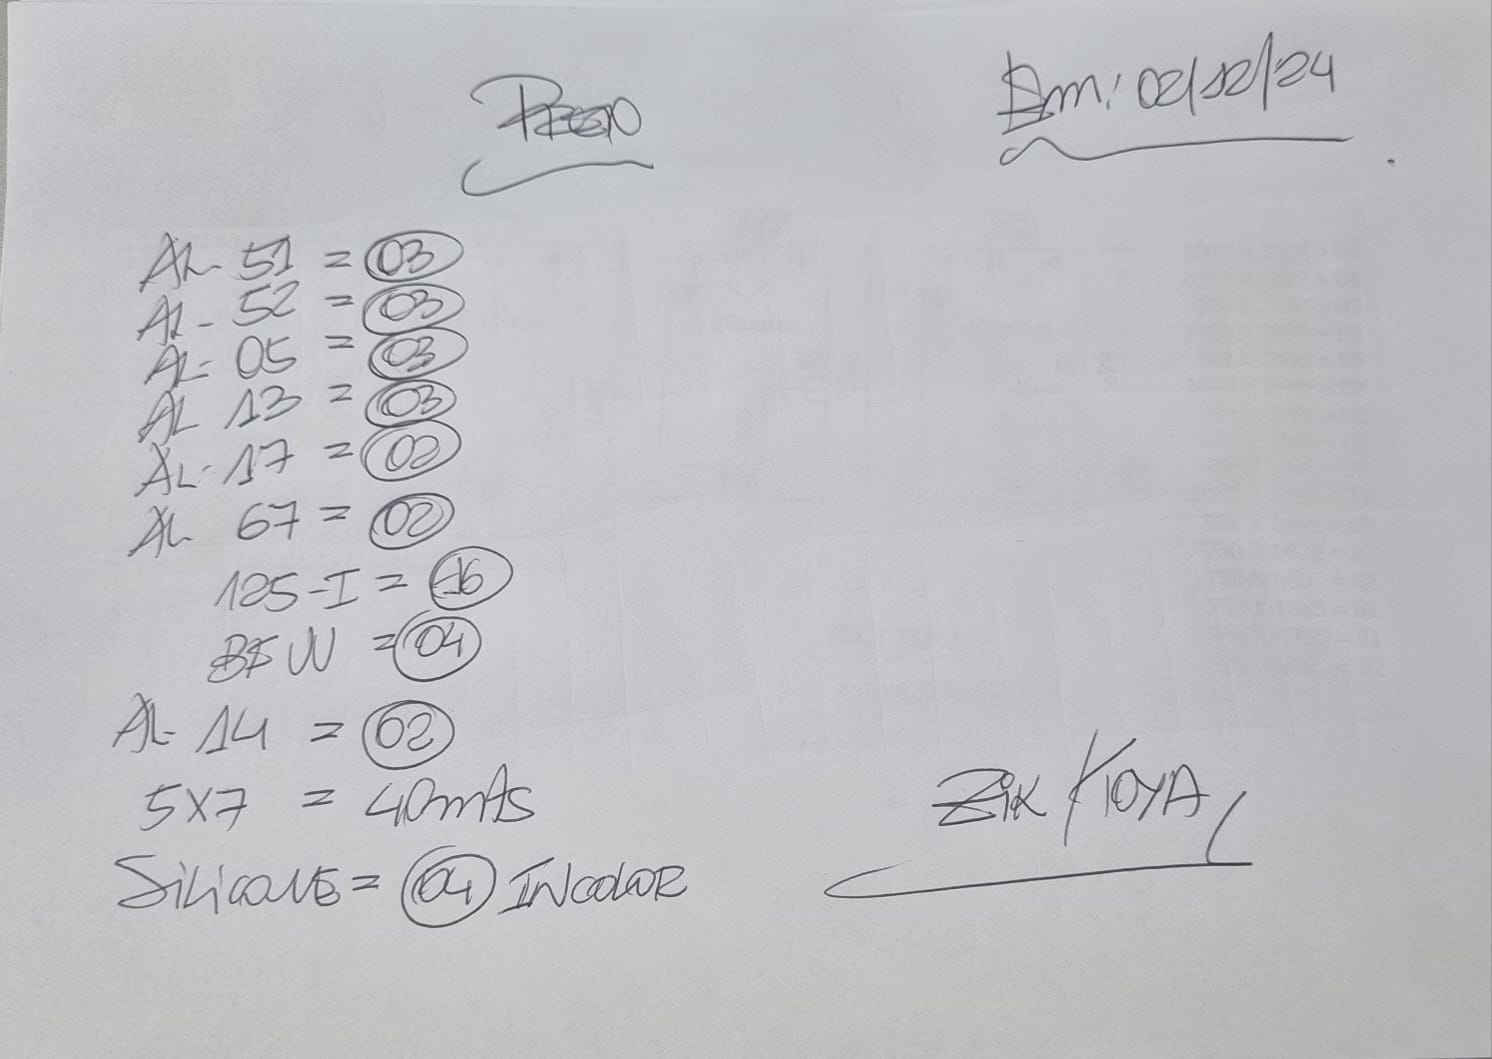 Em: 02/12/24
AL- 51 = 03
AL- 52 = 03
AL- 05 = 03
AL 13 = 03
AL- 17 = 02
AL 67 = 02
125-I = 16
BSW = 04
AL- 14 = 02
5X7 = 40mts
SiLicoNE = 04 INcoloR